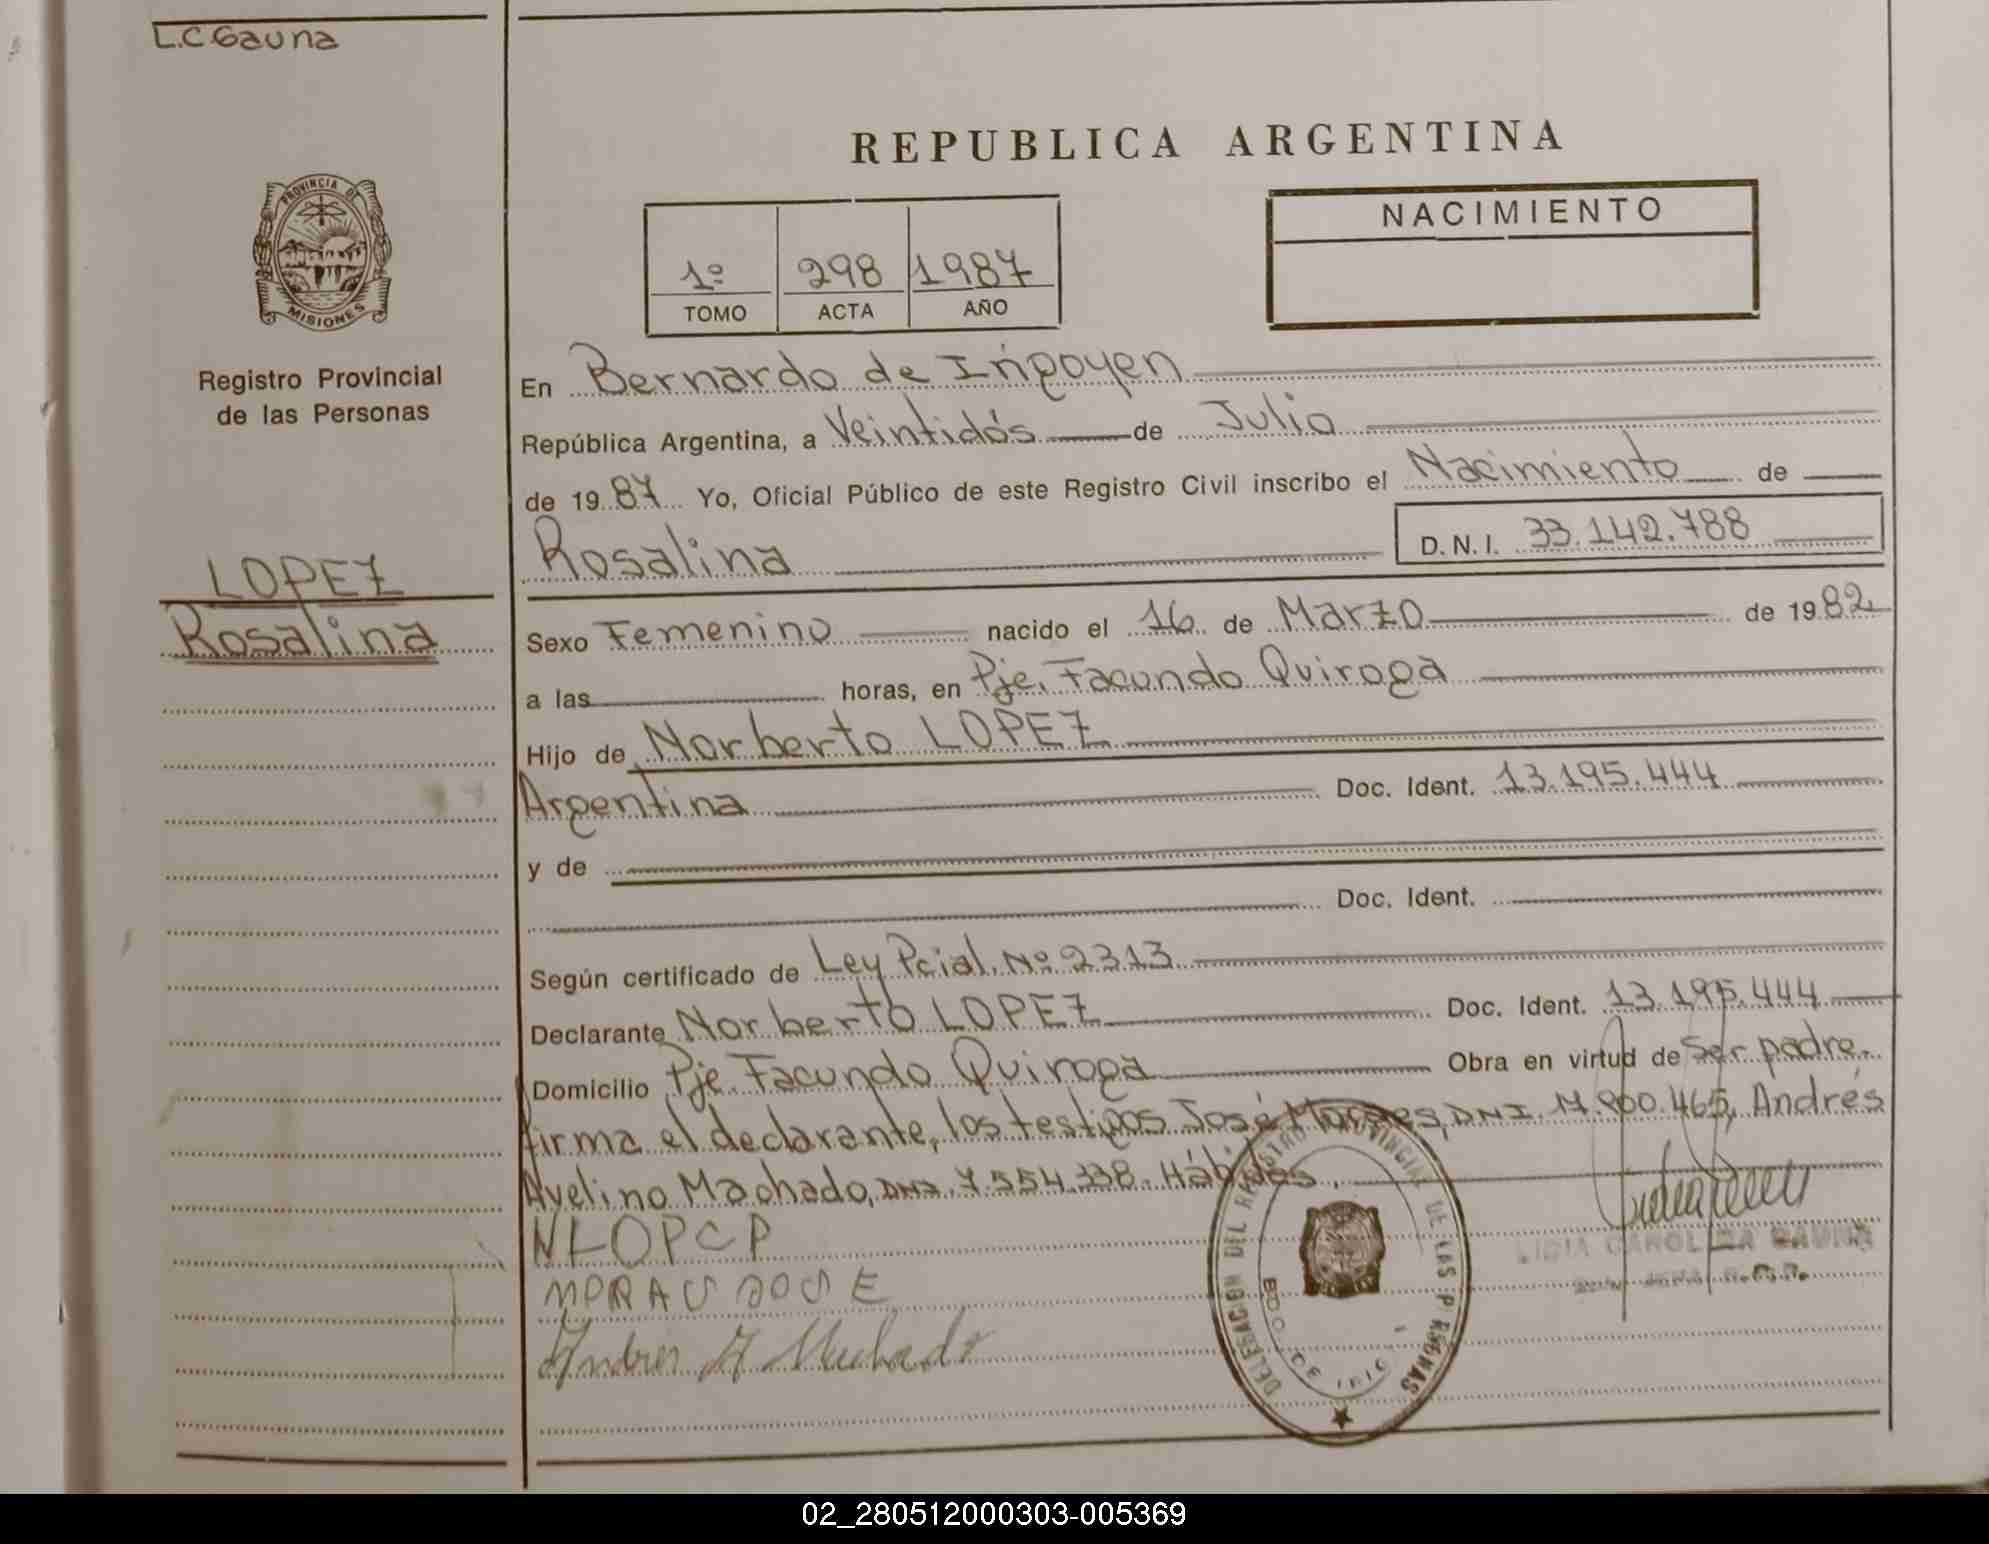 L.C.Gauna
REPUBLICA ARGENTINA
PROVINCIA DE
MISIONES
NACIMIENTO
1º 298 1987
TOMO ACTA AÑO
Registro Provincial
de las Personas
En Bernardo de Irigoyen
República Argentina, a Veintidós de Julio
de 1987 Yo, Oficial Público de este Registro Civil inscribo el Nacimiento de
Rosalina D.N.I. 33.142.788
LOPEZ
Rosalina
Sexo Femenino nacido el 16 de Marzo de 1982
a las horas, en Pje. Facundo Quiroga
Hijo de Norberto LOPEZ
Argentina Doc. Ident. 13.195.444
y de
Doc. Ident.
Según certificado de Ley Pcial. Nº 2313
Declarante Norberto LOPEZ Doc. Ident. 13.195.444
Domicilio Pje. Facundo Quiroga Obra en virtud de Ser padre.
firma el declarante, los testigos José DNI. 17.900.465, Andrés
Avelino Machado, DNI. 7.554.338. Hábiles.
NLOPCP
Andres A Machado
DELEGACION DEL REGISTRO PROVINCIAL DE LAS PERSONAS
BDO. DE IRIG
LIGIA CAROLINA GAUNA
02_280512000303-005369